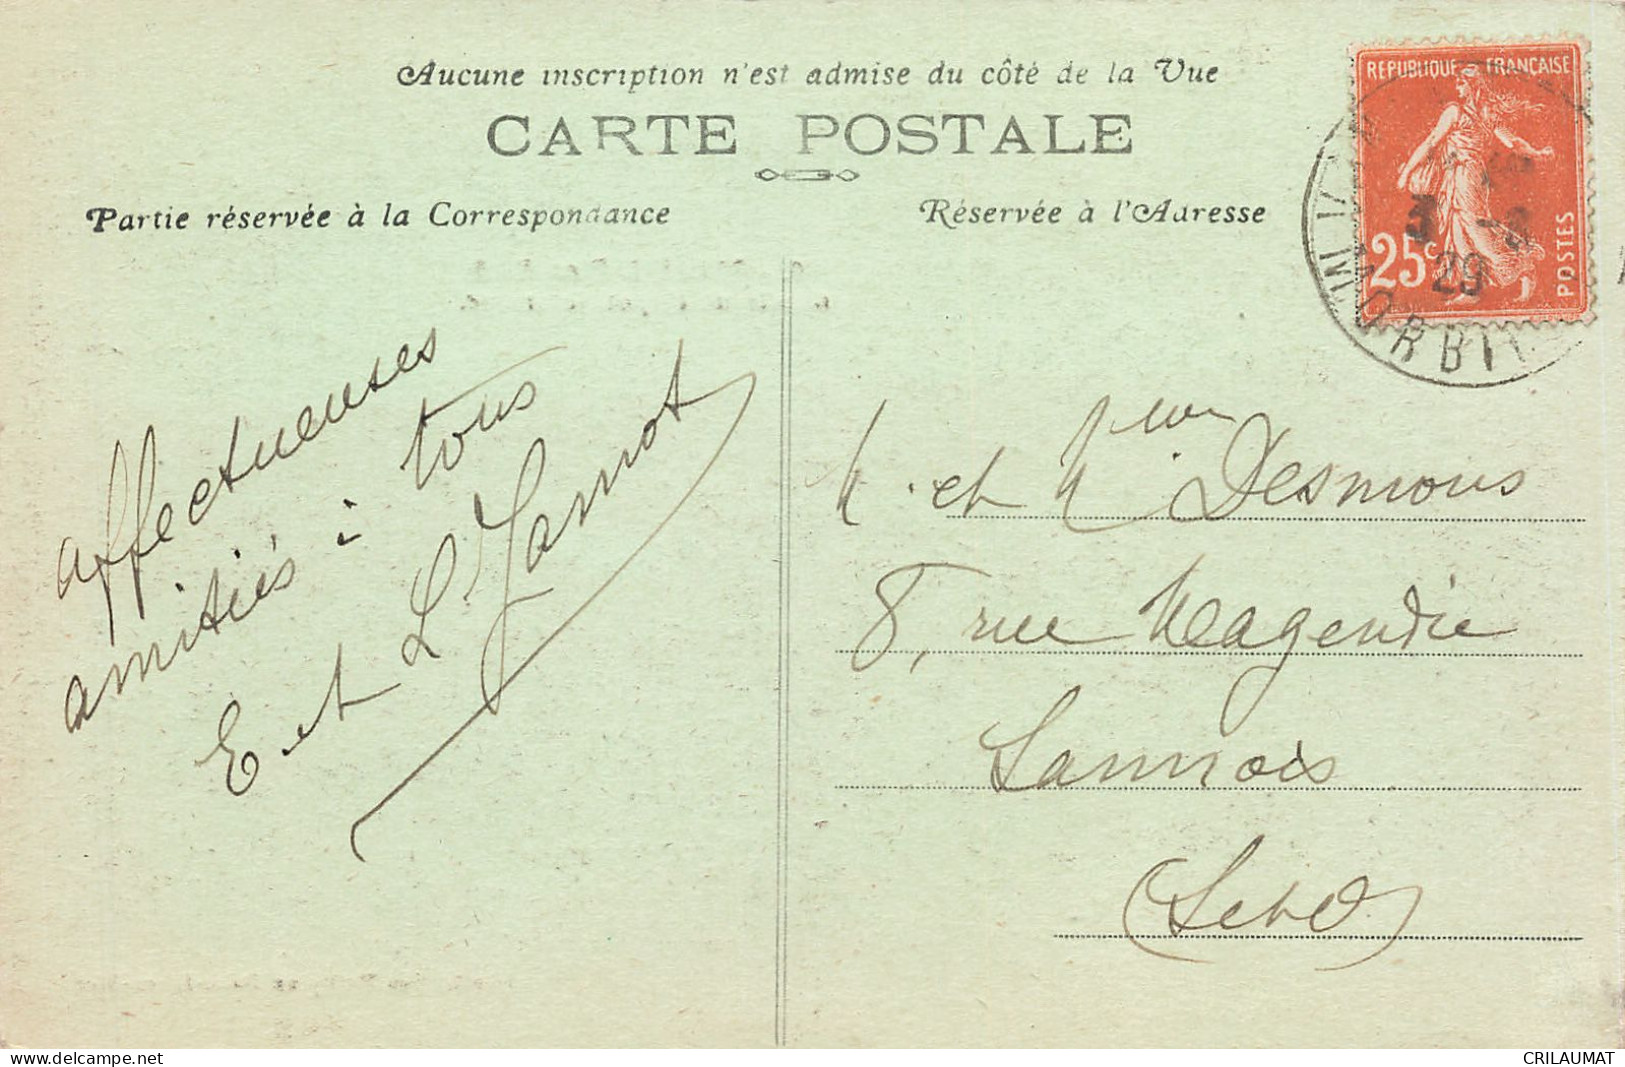 Aucune inscription n'est admise du côté de la Vue
CARTE POSTALE
Partie réservée à la Correspondance
Réservée à l'Adresse
REPUBLIQUE FRANÇAISE
25c
POSTES
3 -8
29
MORBI
affectueuses
amitiés à tous
E et L Jamot
M. et Mme Desmons
8, rue Magendie
Sannois
(S et O)
www.delcampe.net
CRILAUMAT